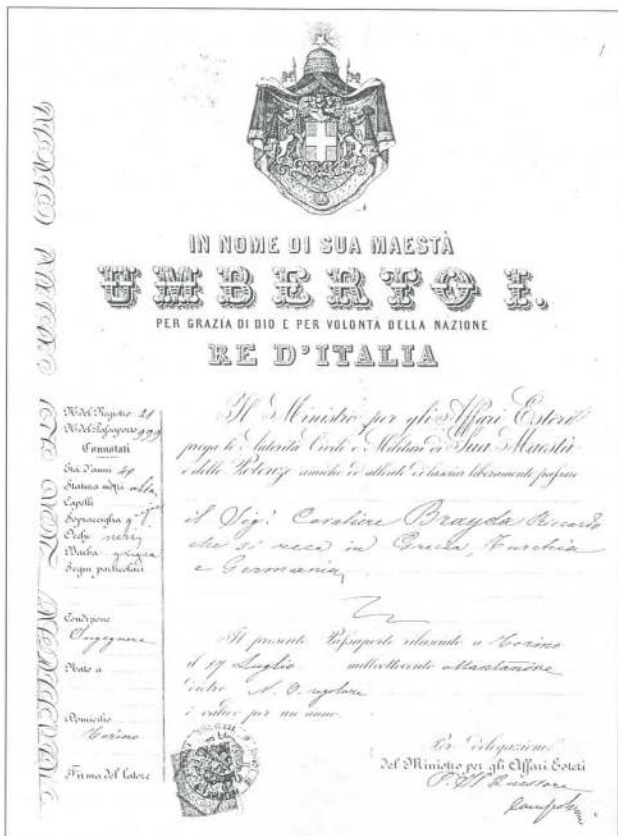 1
IN NOME DI SUA MAESTÀ
UMBERTO I.
PER GRAZIA DI DIO E PER VOLONTÀ DELLA NAZIONE
RE D'ITALIA
N. del Registro 21
N. del Passaporto 999
Connotati
Età d'anni
Statura metri alta
Capelli
Sopracciglia
Occhi neri
Barba grigia
Segni particolari
Condizione
Ingegnere
Nato a
Domicilio
Torino
Firma del Latore
Il Ministro per gli Affari Esteri
prega le Autorità Civili e Militari di Sua Maestà
e delle Potenze amiche ed alleate di lasciar liberamente passare
il Sig. Cavaliere Brayda Riccardo
che si reca in Grecia, Turchia
e Germania
Il presente Passaporto rilasciato a Torino
il 17 Luglio milleottocento ottantanove
dietro N. O. regolare
è valido per un anno.
Per delegazione
del Ministro per gli Affari Esteri
P. Il Questore